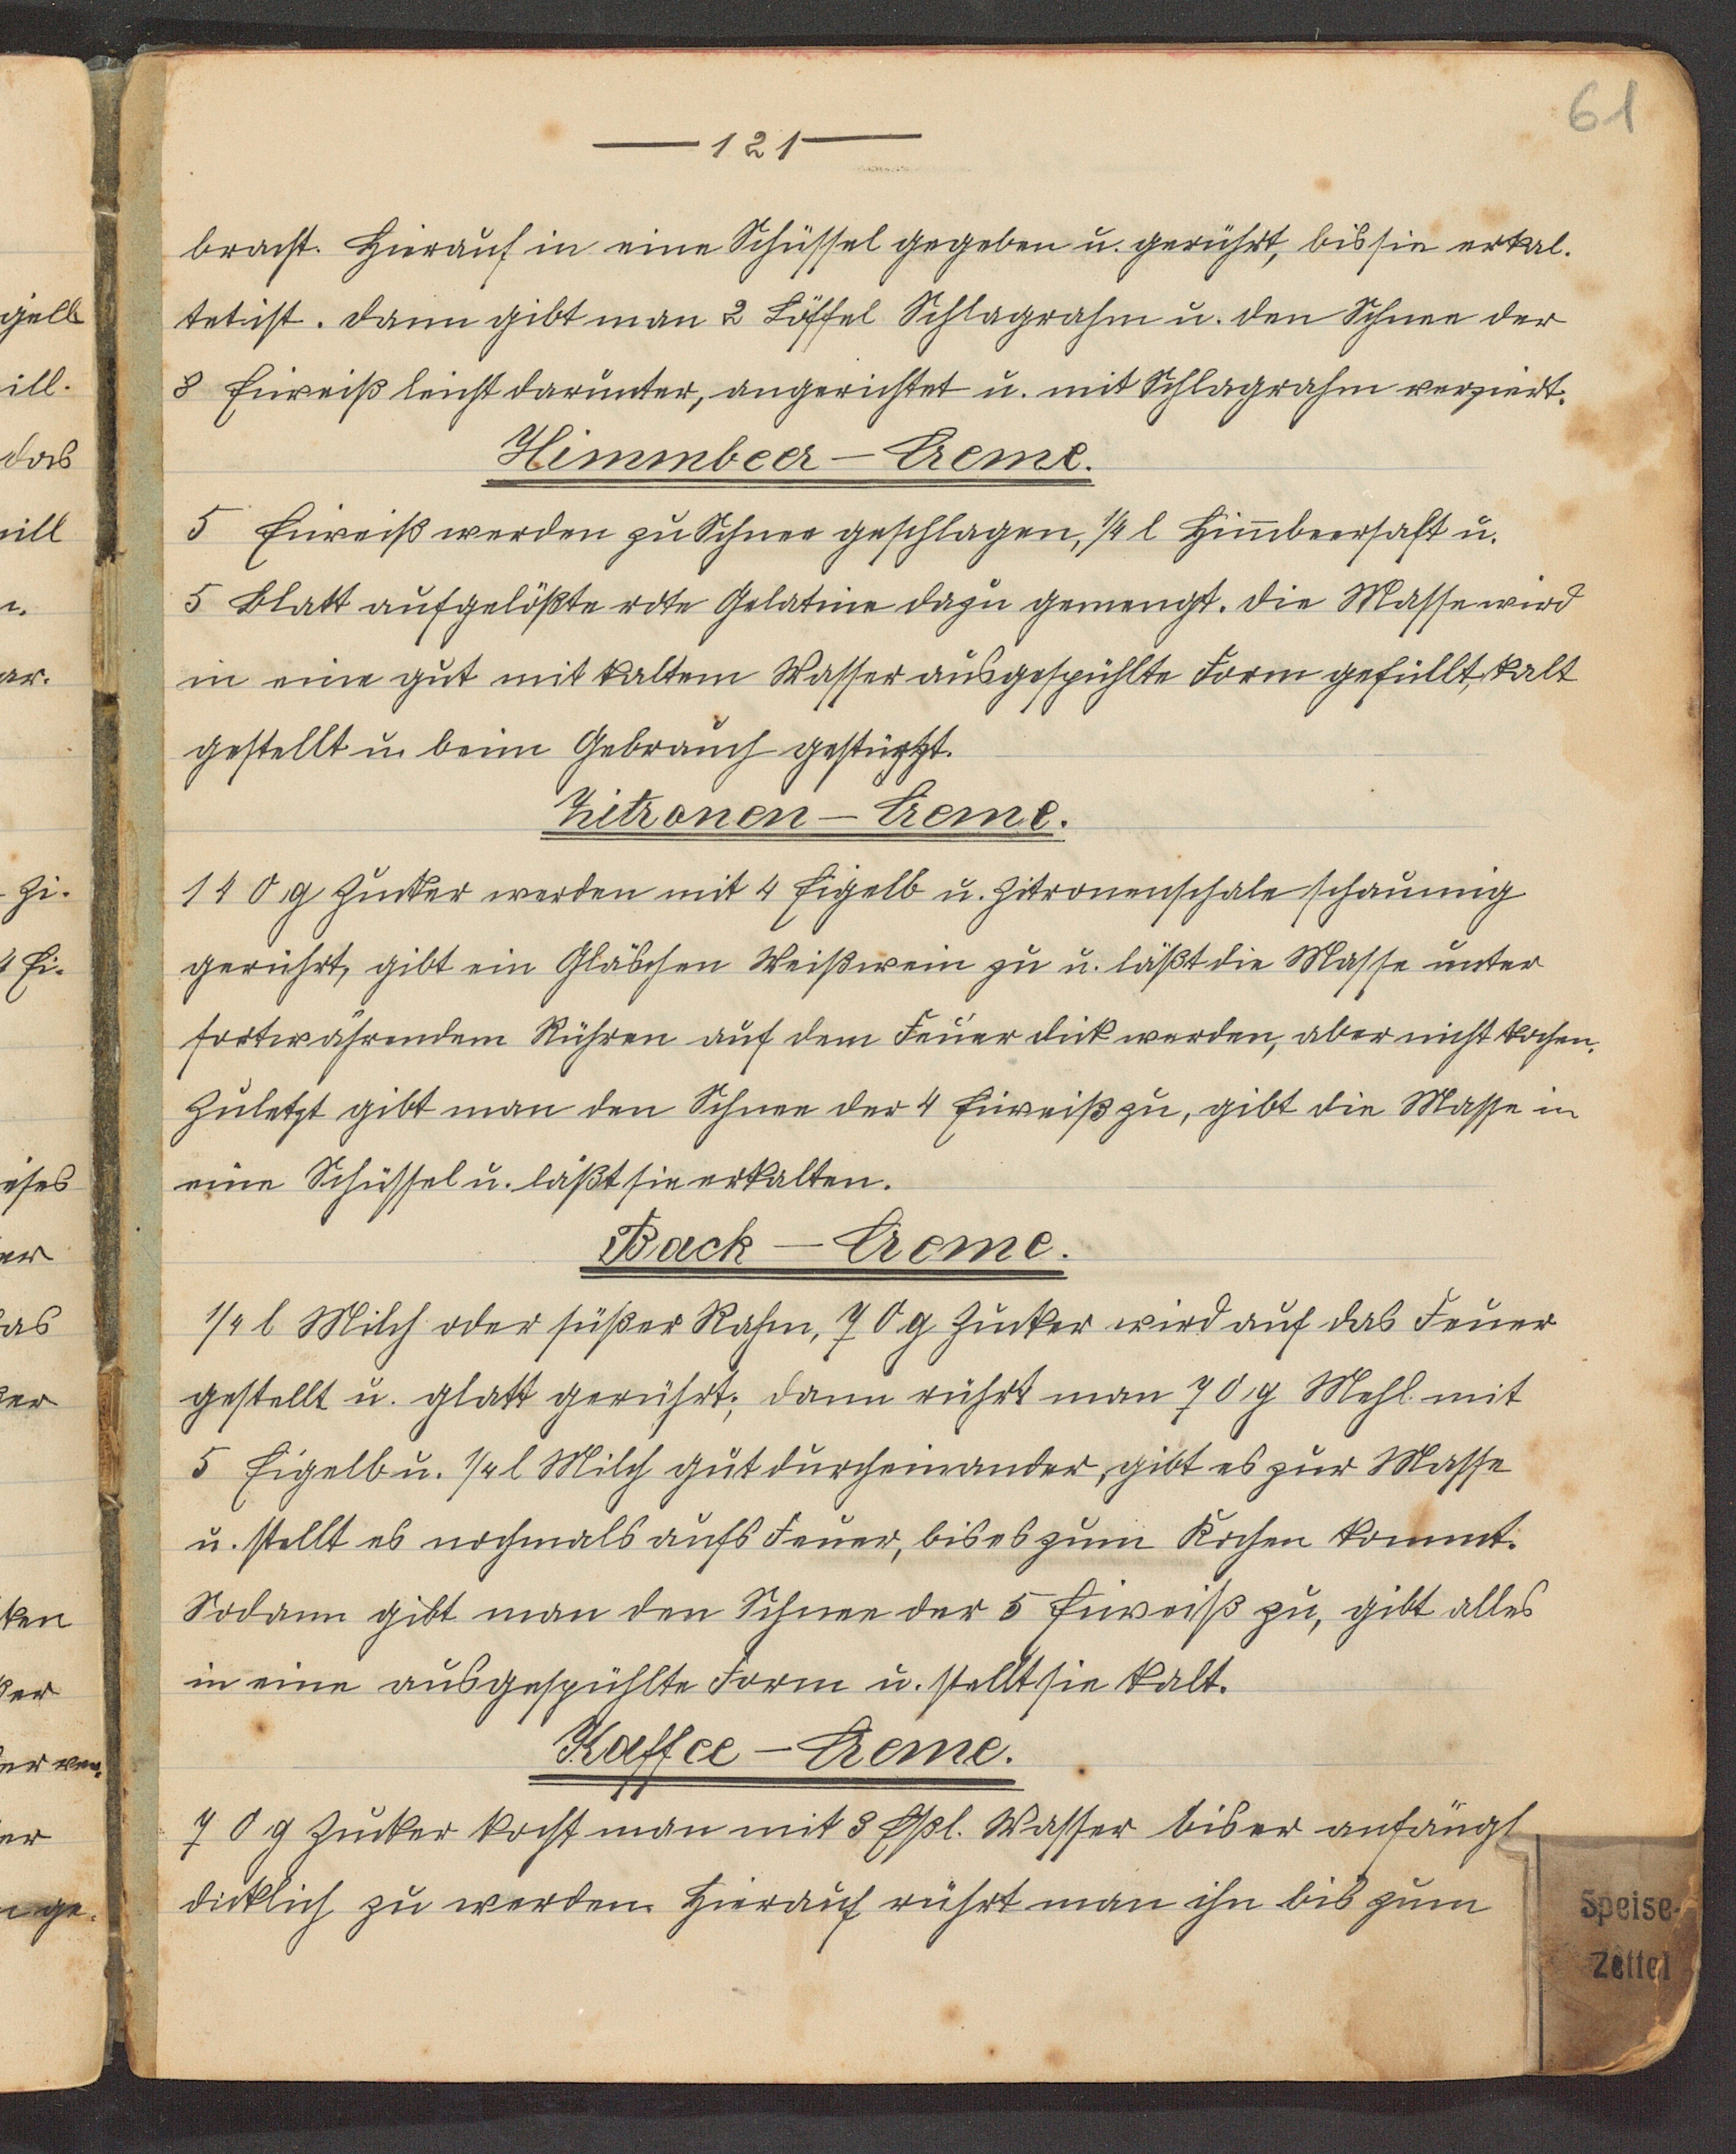 61
— 121 —
bracht. Hierauf in eine Schüssel gegeben u. gerührt, bis sie erkal-
tet ist. Dann gibt man 2 Löffel Schlagrahm u. den Schnee der
8 Eiweiß leicht darunter, angerichtet u. mit Schlagrahm verziert.
Himmbeer – Creme.
5 Eiweiß werden zu Schnee geschlagen, 1/4 l Him̄beersaft u.
5 Blatt aufgelößte rote Gelatine dazu gemengt. Die Masse wird
in eine gut mit kaltem Wasser ausgespühlte Form gefüllt, kalt
gestellt u. beim Gebrauch gestürtzt.
Zitronen – Creme.
140 g Zucker werden mit 4 Eigelb u. Zitronenschale schaumig
gerührt, gibt ein Gläschen Weißwein zu u. läßt die Masse unter
fortwährendem Rühren auf dem Feuer dick werden, aber nicht kochen.
Zuletzt gibt man den Schnee der 4 Eiweiß zu, gibt die Masse in
eine Schüssel u. läßt sie erkalten.
Back – Creme.
1/4 l Milch oder süßer Rahm, 70 g Zucker wird auf das Feuer
gestellt u. glatt gerührt; dann rührt man 70 g Mehl mit
5 Eigelb u. 1/4 l Milch gut durcheinander, gibt es zur Masse
u. stellt es nochmals aufs Feuer, bis es zum Kochen kommt.
Sodann gibt man den Schnee der 5 Eiweiß zu, gibt alles
in eine ausgespühlte Form u. stellt sie kalt.
Kaffee – Creme.
70 g Zucker kocht man mit 3 Eßl. Wasser bis er anfängt
dicklich zu werden. Hierauf rührt man ihn bis zum
Speise-
Zettel